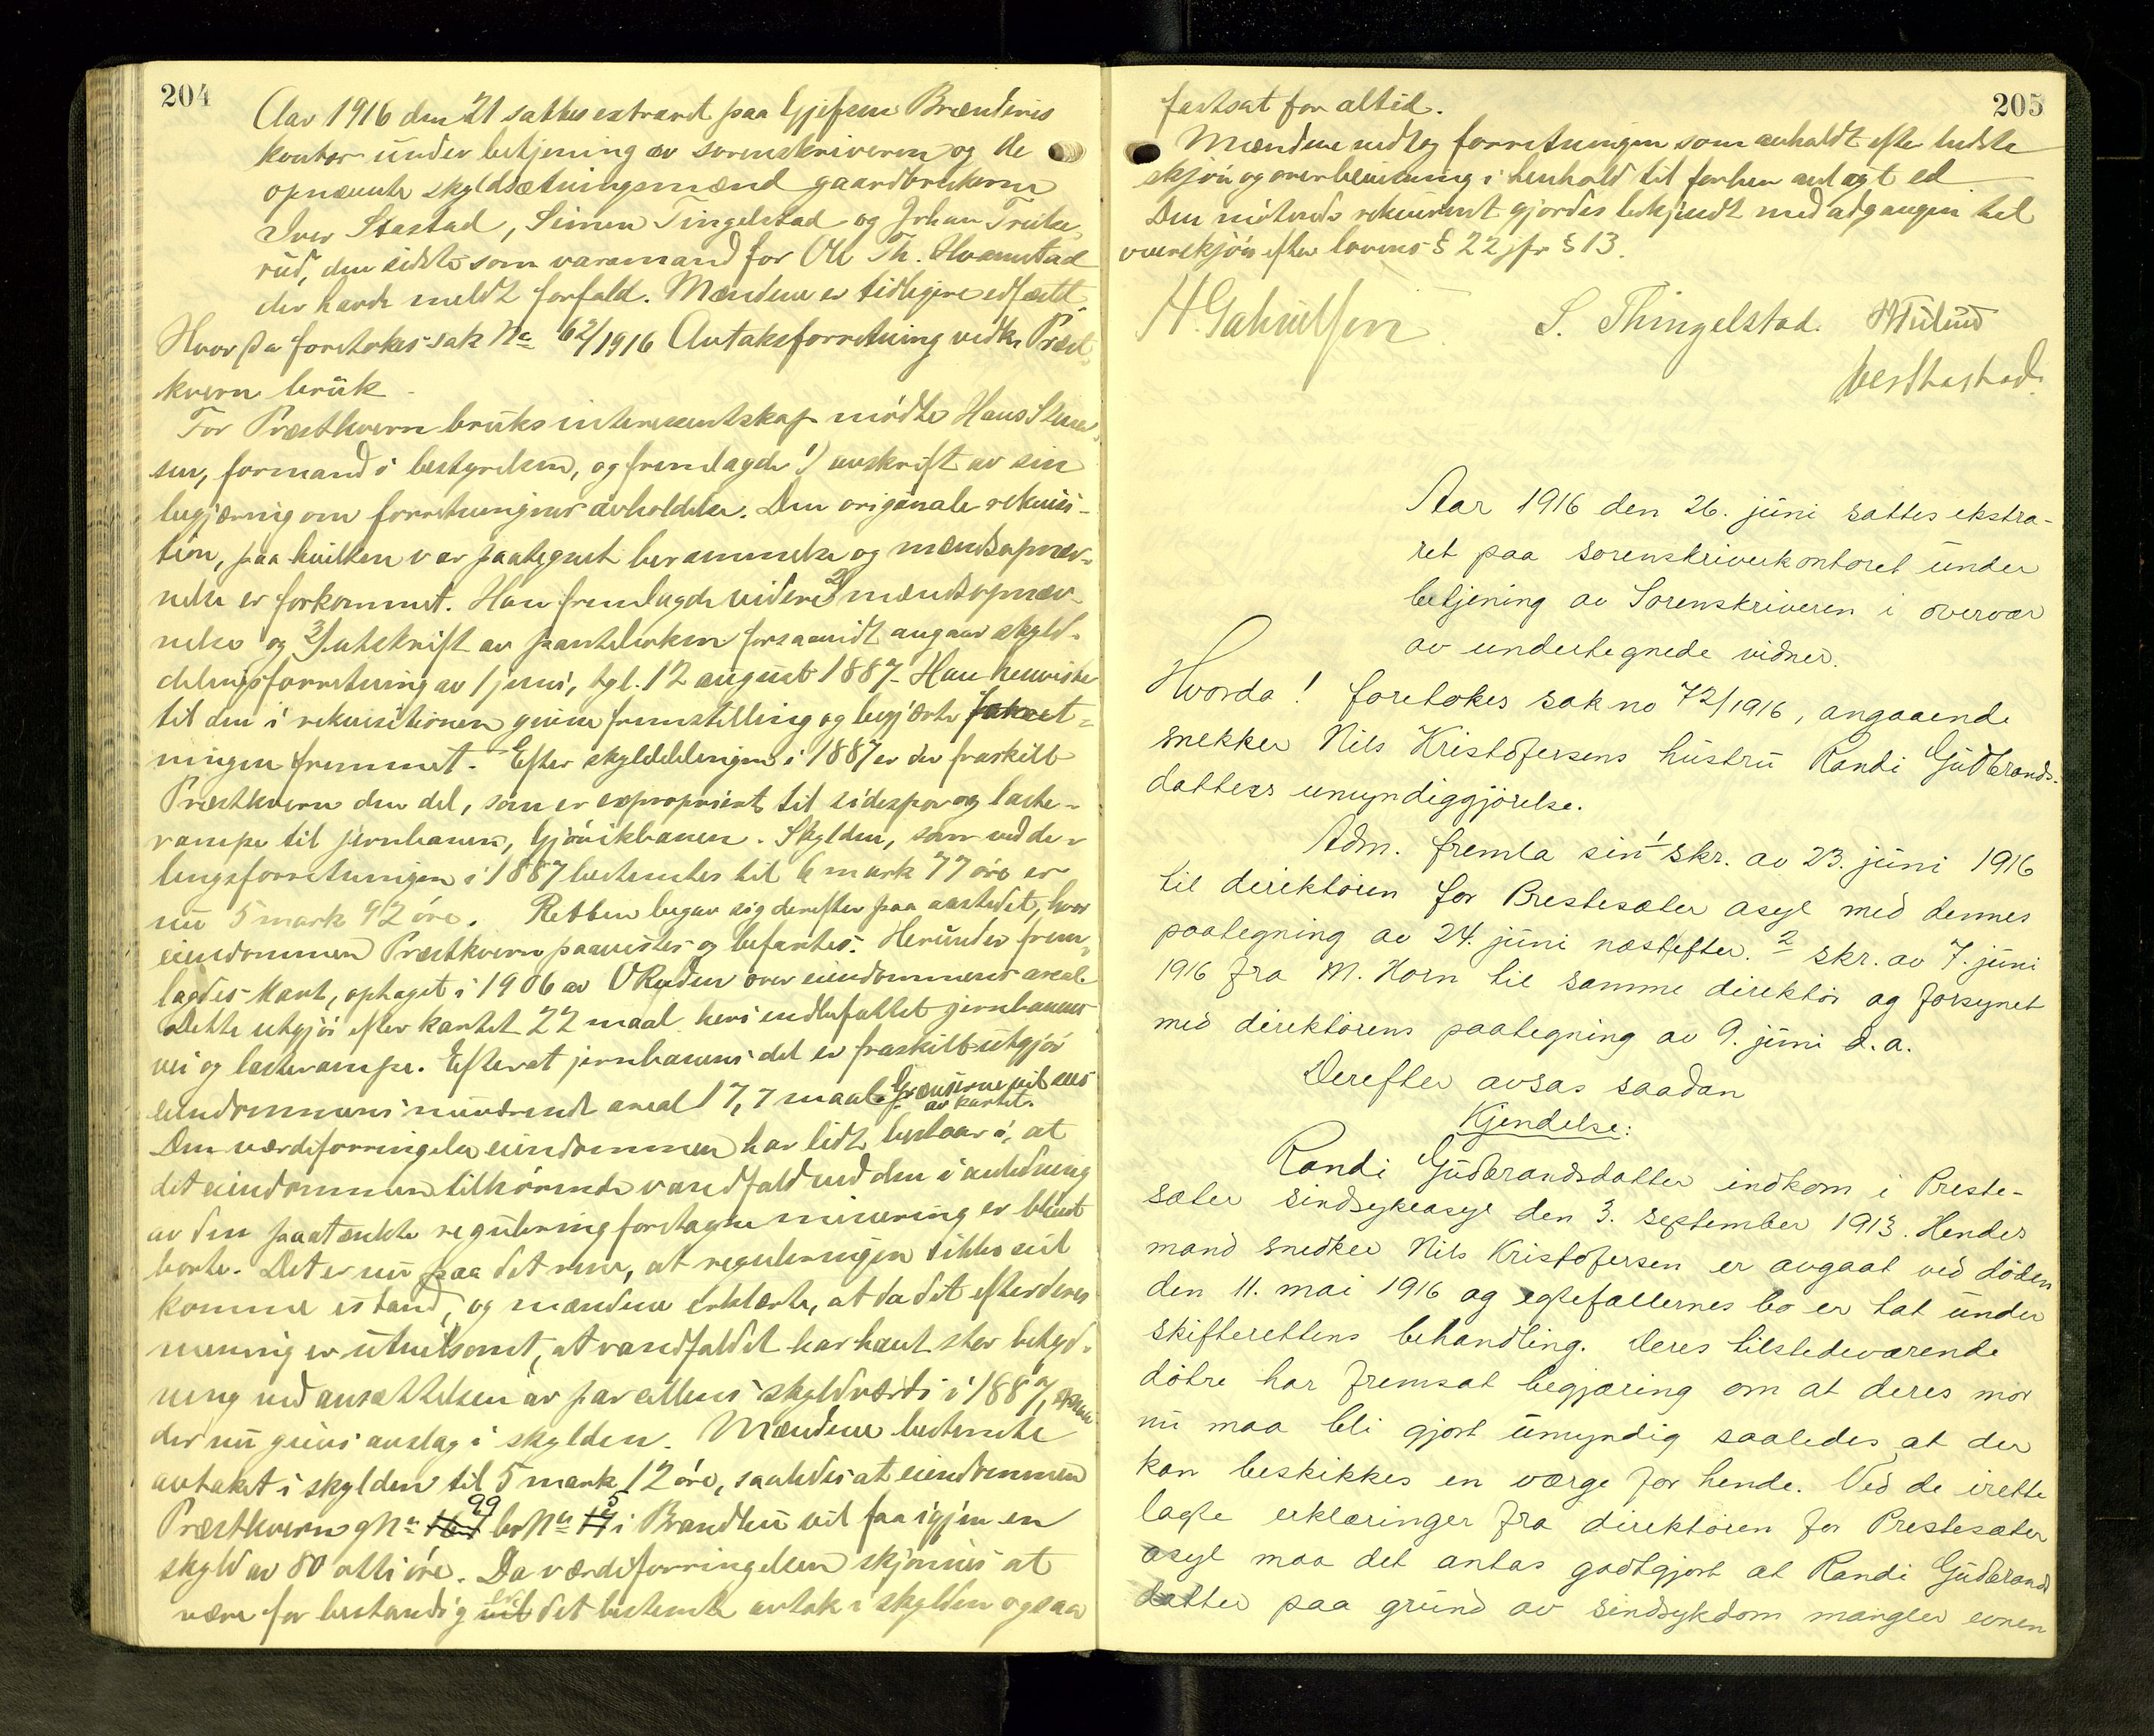 204
Aar 1916 den 21 sattes extraret paa Gjefsen Brænderis
kontor under betjening av sorenskriveren og de
opnævnte skyldsætningsmænd gaardbrukerne
Iver Stastad, Simen Tingelstad og Johan
rud, den sidste som varamand for Ole Th. Hvamstad
der havde meldt forfald. Mændene er tidligere edfæst.
Hvorda foretokes sak No 62/1916 Avtaksforretning vedk. Præst-
kvern bruk.
For Præstkvern bruks interessentskap mødte Hans Steen-
sen, formand i bestyrelsen, og fremlagde 1) avskrift av sin
begjæring om forretningens avholdelse. Den originale rekvisi-
tion, paa hvilken var paategnet berammelse og mændsopnæv-
nelse er forkommet. Han fremlagde videre 2) mændsopnæv-
nelse og 3) utskrift av panteboken forsaavidt angaar skyld-
delingsforretning av 1 juni, tgl. 12 august 1887. Han henviste
til den i rekvisitionen givne fremstilling og begjærte forret-
ningen fremmet. Efter skylddelingen i 1887 er der fraskilt
Præstkvern den del, som er expropriert til sidespor og laste-
rampe til jernbanen, Gjøvikbanen. Skylden, som ved de-
lingsforretningen i 1887 bestemtes til 6 mark 77 øre er
nu 5 mark 92 øre. Retten begav sig derefter paa aastedet, hvor
eiendommen Præstkvern paavistes og befartes. Herunder frem-
lagdes kart, optaget i 1906 av O Ruden over eiendommens areal.
Dette utgjør efter kartet 22 maal heri indbefattet jernbanens
vei og lasterampe. Efterat jernbanens del er fraskilt utgjør
eiendommens nuværende areal 17,7 maal. Grænserne vil sees
av kartet.
Den værdiforringelse eiendommen har lidt bestaar i, at
det eiendommen tilhørende vandfald ved den i anledning
av den paatænkte regulering foretagne minering er blevet
borte. Det er nu paa det rene, at reguleringen ikke vil
komme istand, og mændene erklærte, at da det efter deres
mening er utvilsomt, at vandfaldet har havt stor betyd-
ning ved ansættelsen av parcellens skyldværdi i 1887,
der nu givis avslag i skylden. Mændene bestemte
avtaket i skylden til 5 mark 12 øre, saaledes at eiendommen
Præstkvern gNo 99 brNo 5 i Brandbu vil faa igjen en
skyld av 80 otti øre. Da værdiforringelsen skjønnes at
være for bestandig det bestemte avtak i skylden ogsaa
205
fastsat for altid.
Mændene vedtog forretningen som avholdt efter bedste
skjøn og overbevisning i henhold til forhen avlagt ed
Den møtende rekvirent gjordes bekjendt med adgangen til
overskjøn efter lovens § 22 jfr § 13.
H. Gabrielsen S. Thingelstad.
Iver Stastad.
Aar 1916 den 26. juni sattes ekstra-
ret paa sorenskriverkontoret under
betjening av Sorenskriveren i overvær
av undertegnede vidner.
Hvorda! foretokes sak no 72/1916, angaaende
snekker Nils Kristofersens hustru Randi Gudbrands-
datters umyndiggjørelse.
Adm. fremla sin 1 skr. av 23. juni 1916
til direktøren for Prestesæter asyl med dennes
paategning av 24. juni næstefter. 2 skr. av 7. juni
1916 fra M. Horn til samme direktør og forsynet
med direktørens paategning av 9. juni d. a.
Derefter avsas saadan
Kjendelse:
Randi Gudbrandsdatter indkom i Preste-
sæter sindsykeasyl den 3. september 1913. Hendes
mand snedker Nils Kristofersen er avgaat ved døden
den 11. mai 1916 og egtefællernes bo er tat under
skifterettens behandling. Deres tilstedeværende
døtre har fremsat begjæring om at deres mor
nu maa bli gjort umyndig saaledes at der
kan beskikkes en værge for hende. Ved de irette
lagte erklæringer fra direktøren for Prestesæter
asyl maa det antas godtgjort at Randi Gudbrands
datter paa grund av sindsykdom mangler evnen